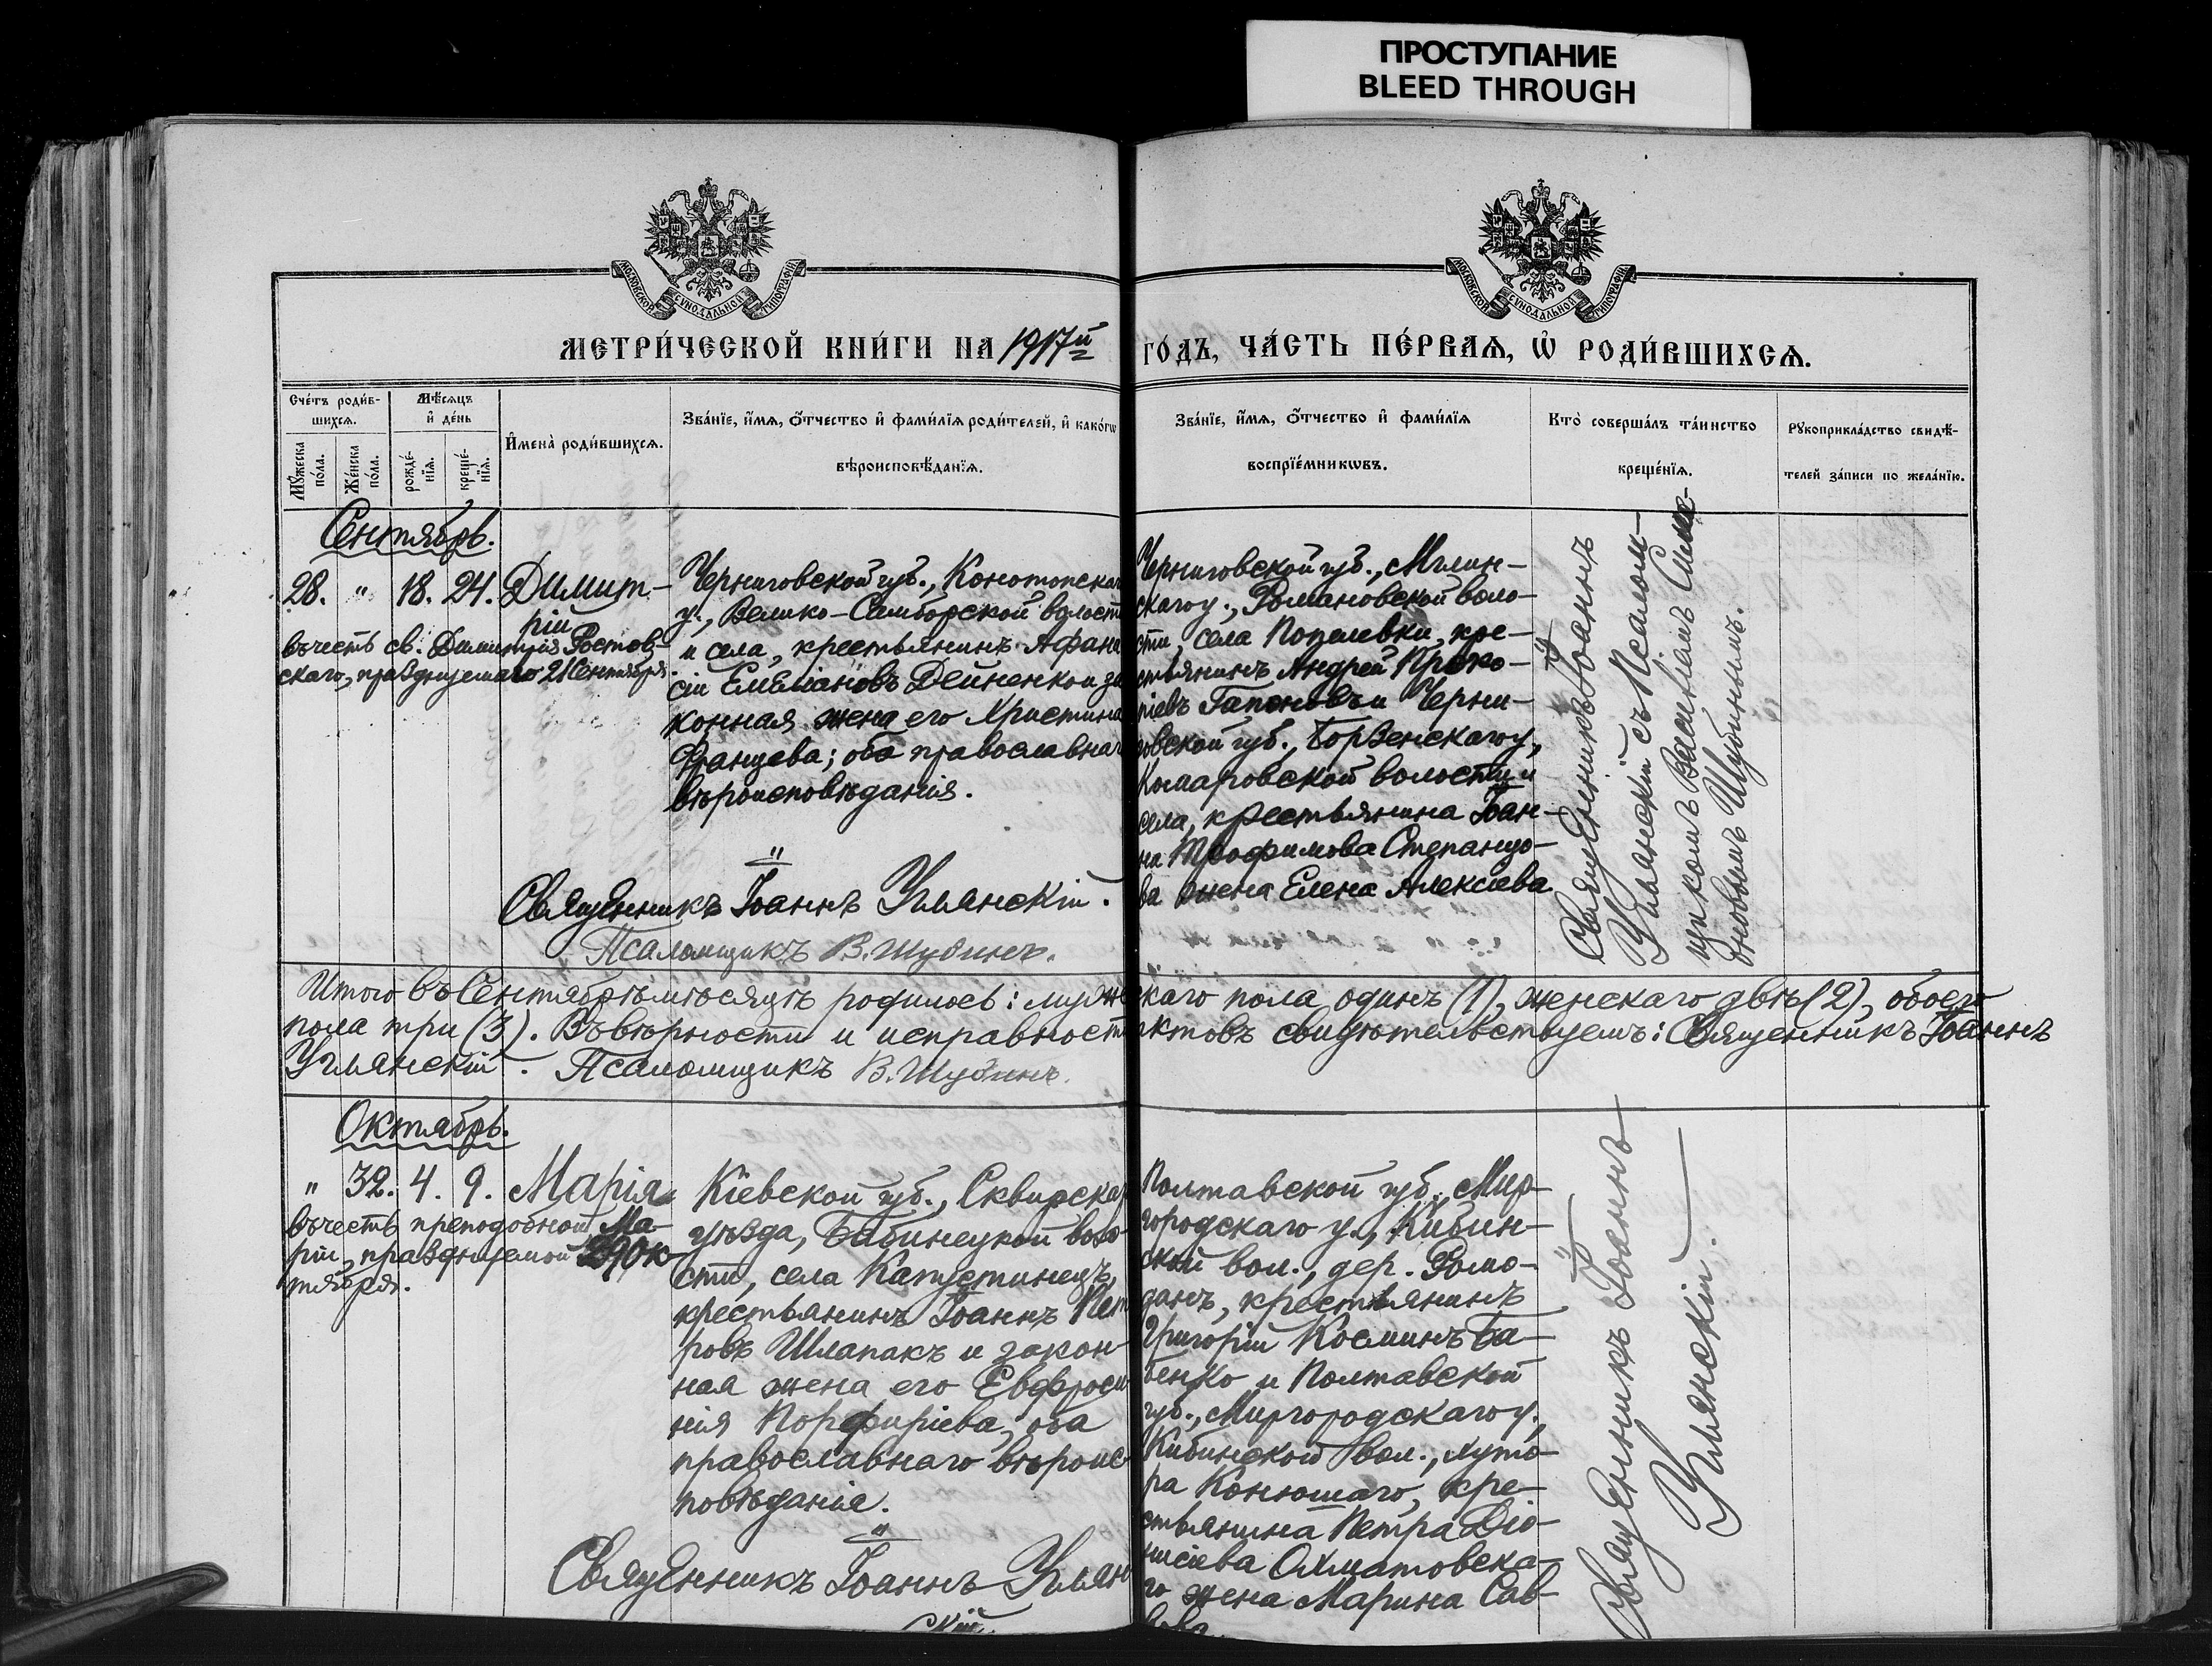 ПРОСТУПАНИЕ
BLEED THROUGH
МОСКОВСКОЙ СѴНОДАЛЬНОЙ ТИПОГРАФІИ
МОСКОВСКОЙ СѴНОДАЛЬНОЙ ТИПОГРАФІИ
МЕТРИ́ЧЕСКОЙ КНИ́ГИ НА 1917й ГО́ДЪ, ЧА́СТЬ ПЕ́РВАѦ, Ѡ҆ РОДИ́ВШИХСѦ.
Сче́тъ роди́в-
шихсѧ.
Мꙋ́жеска по́ла.
Же́нска по́ла.
Мѣ́сѧцъ
и҆ де́нь
рожде́-
нїѧ.
креще́-
нїѧ.
И҆мена̀ роди́вшихсѧ.
Зва́нїе, и҆́мѧ, ѻ҆́тчество и҆ фами́лїѧ роди́телей, и҆ како́гѡ
вѣроисповѣ́данїѧ.
Зва́нїе, и҆́мѧ, ѻ҆́тчество и҆ фами́лїѧ
воспрїе́мникѡвъ.
Кто̀ соверша́лъ та́инство
креще́нїѧ.
Рꙋкоприкла́дство свидѣ́-
телей за́писи по жела́нїю.
Сентябрь.
28. " 18. 24. Димит-
рій
въ честь св. Димитрія Ростов-
скаго, празднуемаго 21 Сентября.
Черниговской губ., Конотопска
у., Велико-Самборской волост
и села, крестьянинъ Афана
сій Емеліановъ Дейненко и за
конная жена его Христина
Францева; оба православна
вѣроисповѣданія.
"
Священникъ Іоаннъ Ульянскій.
Псаломщикъ В. Шубинъ.
Черниговской губ., Мглин-
скаго у., Романовской воло-
сти, села Попелевки, кре-
стьянинъ Андрей Проко-
піевъ Гапоновъ и Черни-
говской губ., Борзенскаго у.,
Комаровской волости и
села, крестьянина Іоан-
на Трофимова Степанцо-
ва жена Елена Алексіева.
Священникъ Іоаннъ
Ульянскій съ Псалом-
щикомъ Василіемъ Симе-
оновымъ Шубинымъ.
Итого въ Сентябрѣ мѣсяцѣ родилось: мужескаго пола одинъ (1), женскаго двѣ (2), обоего
пола три (3). Въ вѣрности и исправности актовъ свидѣтельствуемъ: Священникъ Іоаннъ
Ульянскій. Псаломщикъ В. Шубинъ.
Октябрь.
" 32. 4. 9. Марія
въ честь преподобной Ма-
ріи, празднуемой 29 Ок-
тября.
Кіевской губ., Сквирска
уѣзда, Бабинецкой воло-
сти, села Капустинецъ,
крестьянинъ Іоаннъ Пет
ровъ Шлапакъ и закон-
ная жена его Евфроси
нія Порфиріева, оба
православнаго вѣроис
повѣданія.
"
Священникъ Іоаннъ Ульян
скій.
Полтавской губ., Мир-
городскаго у., Кибин-
ской вол., дер. Ромо-
данъ, крестьянинъ
Григорій Косминъ Ба-
бенко и Полтавской
губ., Миргородскаго у.,
Кибинской вол., хуто-
ра Конюшаго, кре-
стьянина Петра Діо-
нисіева Охматовска-
го жена Марина Сав-
Священникъ Іоаннъ
Ульянскій.